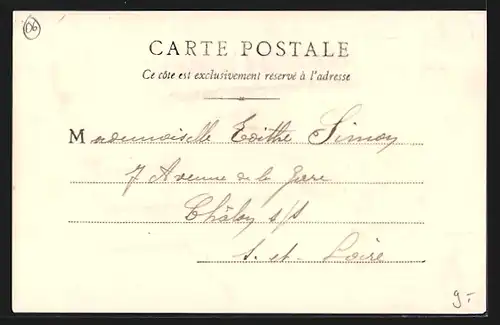 06
CARTE POSTALE
Ce côté est exclusivement réservé à l'adresse
Mademoiselle Edithe Simon
7 Avenue de la Gare
Châlon s/s
S. et. Loire
9.-